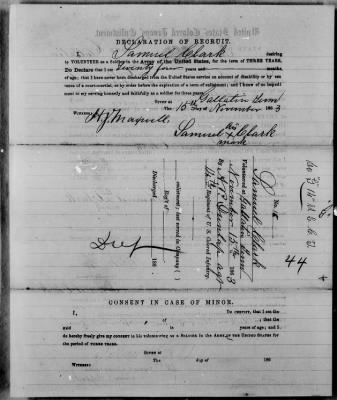 DECLARATION OF RECRUIT.
I, Samuel Clark desiring
to VOLUNTEER as a Soldier in the Army of the United States, for the term of THREE YEARS,
Do Declare that I am Twenty four years and months
of age; that I have never been discharged from the United States service on account of disability or by sentence
of a court-martial, or by order before the expiration of a term of enlistment; and I know of no impediment
to my serving honestly and faithfully as a soldier for three years.
GIVEN at Gallatin Tenn
The 15th day of November 1863
WITNESS:
Samuel his x mark Clark
No. 15
Samuel Clark
Volunteered at Gallatin Tenn
November 15th 1863
By A. J. Dunlap agt
14th Regiment of U.S. Colored Infantry
enlistment; last served in Company ( )
Reg't of
Discharged 186 .
Dup
Co. F. 14 U.S.C.I.
44
CONSENT IN CASE OF MINOR.
I, Do CERTIFY, that I am the
of ; that the
said is years of age; and I
do hereby freely give my CONSENT to his volunteering as a SOLDIER in the ARMY OF THE UNITED STATES for
the period of THREE YEARS.
GIVEN at
The day of 186
WITNESS: